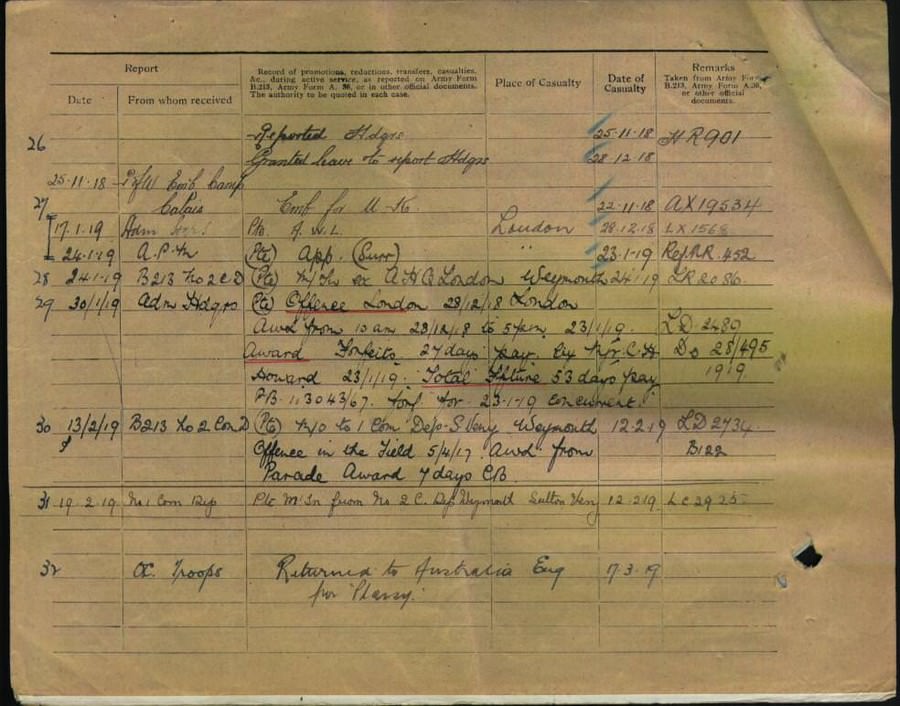 Report
Record of promotions, reductions, transfers, casualties,
&c., during active service, as reported on Army Form
B.213, Army Form A. 36, or in other official documents.
The authority to be quoted in each case.
Place of Casualty
Date of
Casualty
Remarks
Taken from Army Form
B.213, Army Form A.36,
or other official
documents.
Date From whom received
26 Reported Hdqrs 25-11-18 HR901
Granted leave to report Hdqrs 28-12-18
25-11-18 P of W Emb Camp
27 Calais Emb for U-K. 22-11-18 AX19534
17.1.19 Adm Pte. A.W.L. London 28-12-18 LX1568
24-1-19 A.P.M (Pte) App. (Surr) " 23-1-19 RepRR.452
28 24-1-19 B213 No 2 C.D (Pte) M/In ex A.H.Q London Weymouth 24/1/19 LR2086.
29 30/1/19 Adm Hdqrs (Pte) Offence London 28/12/18 London
Awl from 10 am 28/12/18 to 5pm 23/1/19. LD 2489
Award Forfeits 27 days pay. by Mjr. C.H Do 28/495
Howard 23/1/19. Total Ffture 53 days pay 1919
23-1-19 concurrent.
30 13/2/19 B213 No 2 Con D (Pte) M/O to 1 Com Dep. S Veny Weymouth 12.2.19 LD2734.
Offence in the Field 5/4/17. Awl from B122
Parade Award 7 days CB.
31 19.2.19 No 1 Com Dep Pte M. In from No 2 C. Dep Weymouth Sutton Veny 12-2-19 LC2925
32 OC. Troops Returned to Australia Eng 17.3.19
per "Plassy."